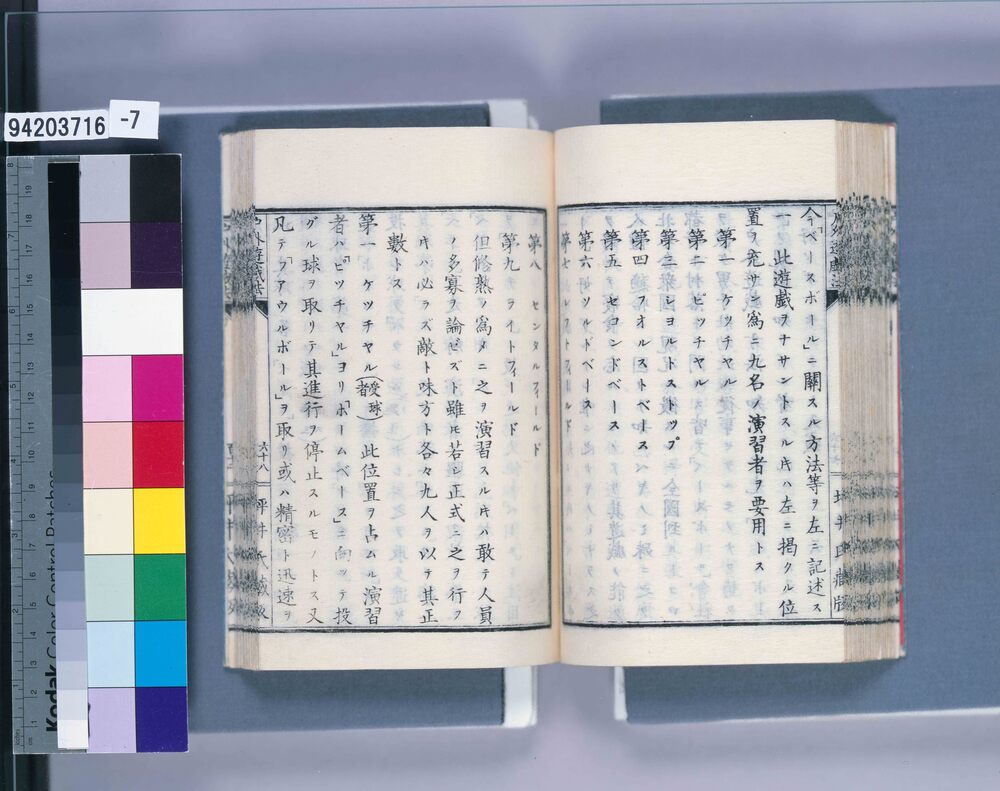 今「ベースボール」ニ關スル方法等ヲ左ニ記述ス
一 此遊戯ヲナサントスル片ハ左ニ掲クル位
置ヲ充サン爲ニ九名ノ演習者ヲ要用トス
第一 ケツチヤル
第二 ピッチヤル
第三 シヨルトストップ
第四 フオルストベース
第五 セコンドベース
第六 ソルドベース
第七
第八 センタルフィールド
第九 ライトフィールド
但修熟ノ爲メニ之ヲ演習スル片ハ敢テ人員
ノ多寡ヲ論ゼズト雖ㇳモ若シ正式ニ之ヲ行フ
片ハ必ラズ敵ト味方ト各々九人ヲ以テ其正
數トス
第一 ケツチヤル(受球者)此位置ヲ占ムル演習
者ハ「ピツチヤル」ヨリ「ホームベース」ニ向ッテ投
グル球ヲ取リテ其進行ヲ停止スルモノトス又
凡テ「フアウルボール」ヲ取リ或ハ精密ト迅速ヲ
戸外遊戯法
六十八
坪井氏藏版
94203716
-7
Kodak Color Control Patches